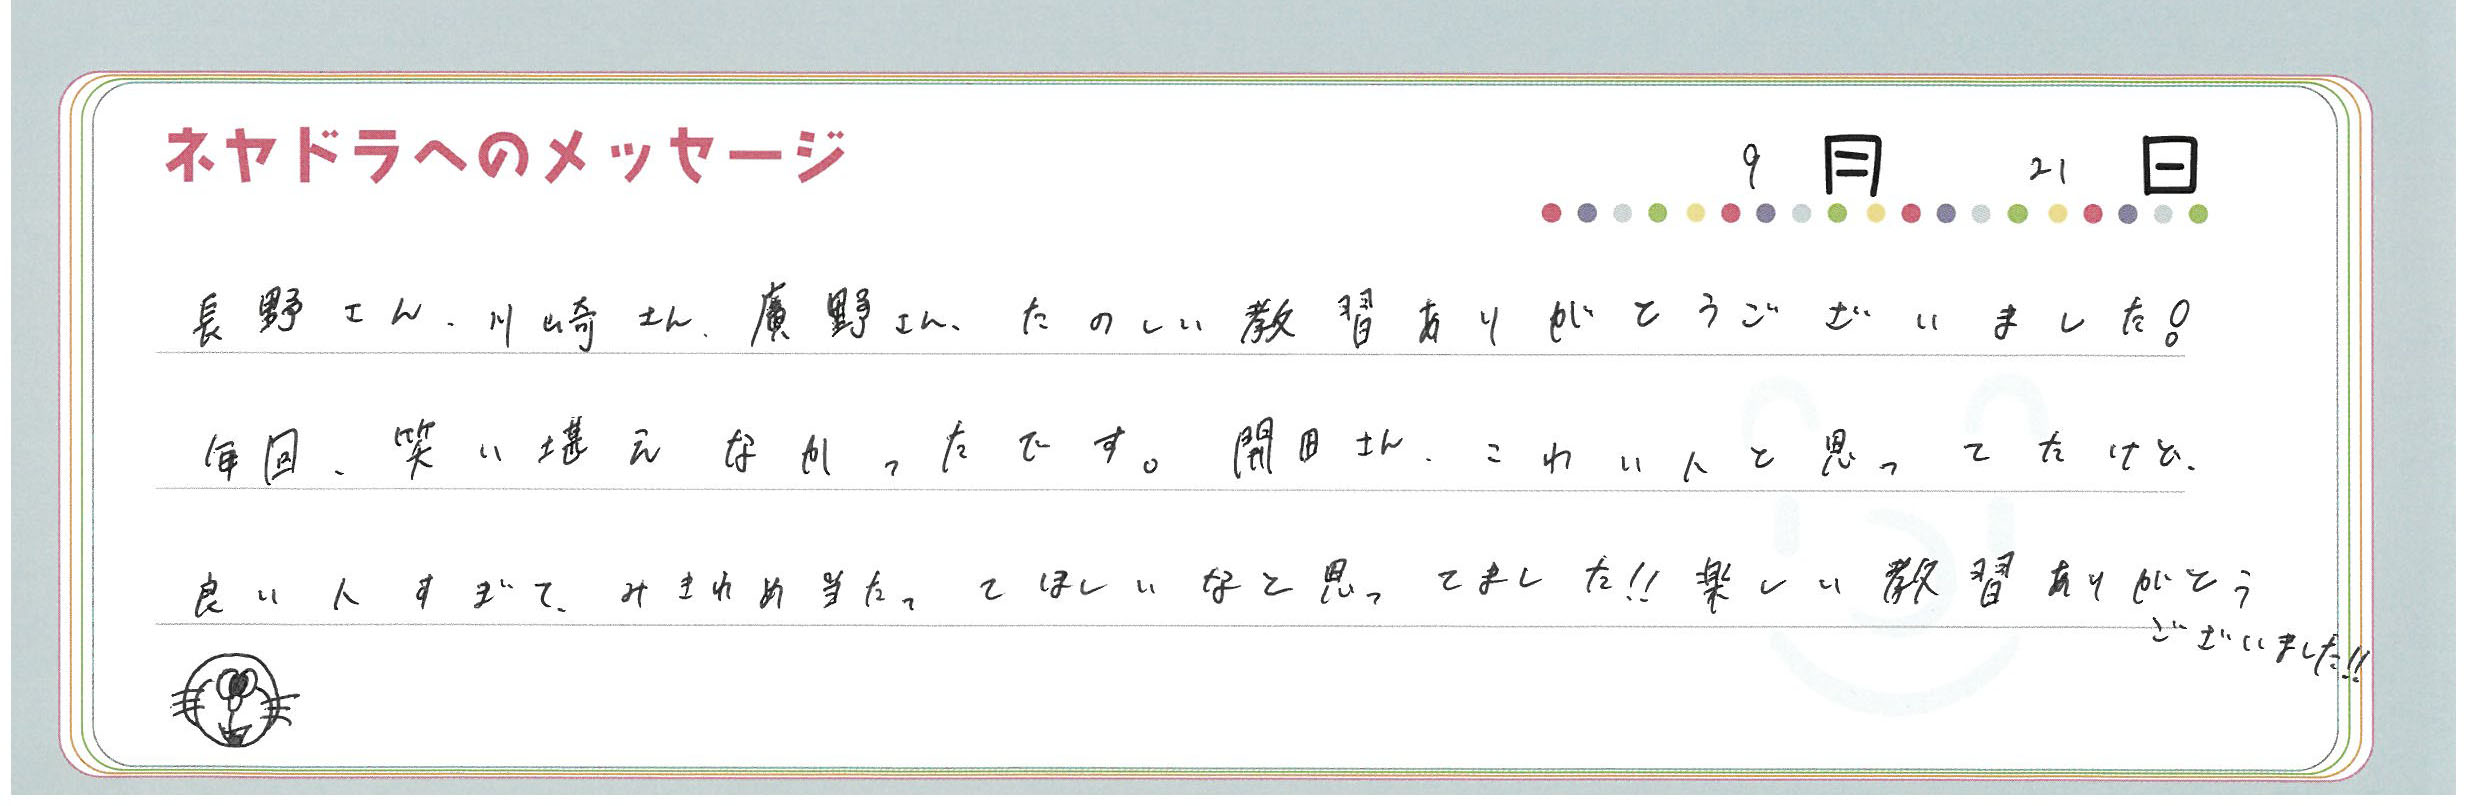 ネヤドラへのメッセージ
9月 21日
長野さん、川崎さん、廣野さん、たのしい教習ありがとうございました!
毎回、笑い堪えなかったです。開田さん、こわい人と思ってたけど、
良い人すぎて、みきわめ当たってほしいなと思ってました!!楽しい教習ありがとう
ございました!!